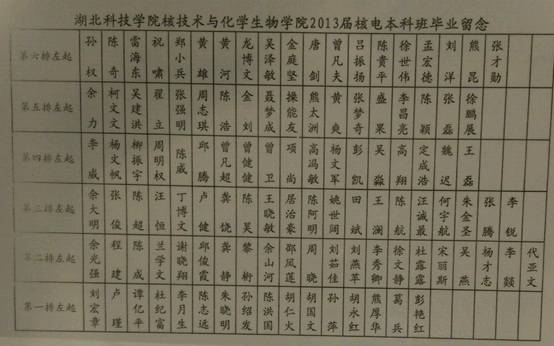 湖北科技学院核技术与化学生物学院2013届核电本科班毕业留念
第六排左起 孙权 陈奇 雷海东 祝啸 郑小兵 黄雄 黄河 龙博文 吴泽敏 金庭坚 唐剑 曾凡夫 吕振扬 陈贵平 徐世伟 孟宏德 刘洋 熊昆 张才勋
第五排左起 余力 柯文文 吴建洪 翟立 张强明 周志琪 陈浩 金刘 聂梦成 操能友 熊太洲 黄爽 张梦奇 盛果 李昌亮 陈颖 张磊 徐鹏展
第四排左起 李威 杨文帆 柳振宇 周明权 陈威 邱腾 曾凡超 曾健健 曾卫 项尚 高冯敏 杨文军 彭凯 吴淼 高翔 定成浩 魏迟 王磊
第三排左起 余大明 张俊 陈超 汪恒 丁博文 卢健 龚烧 陈昊 王晓敏 居治豪 陈阿明 姚世阔 田斌 王澜 陈航 汪诚最 何宇航 朱金圣 张腾 李锐
第二排左起 余光强 程建 陈成 兰学文 谢晓翔 邱俊霞 龚静 黎彬 余山河 邵凤莲 周晓 刘茹佳 刘燕苹 李秀卿 徐文静 杜露露 宋丽斯 吴燕 杨才志 李燚 代亚文
第一排左起 刘宏章 卢瑾 谭亿平 杜纪富 李月生 陈志远 朱晓明 孙绍发 陈洪国 胡仁火 胡国文 孙萍 胡永红 熊厚华 葛兵 彭艳红